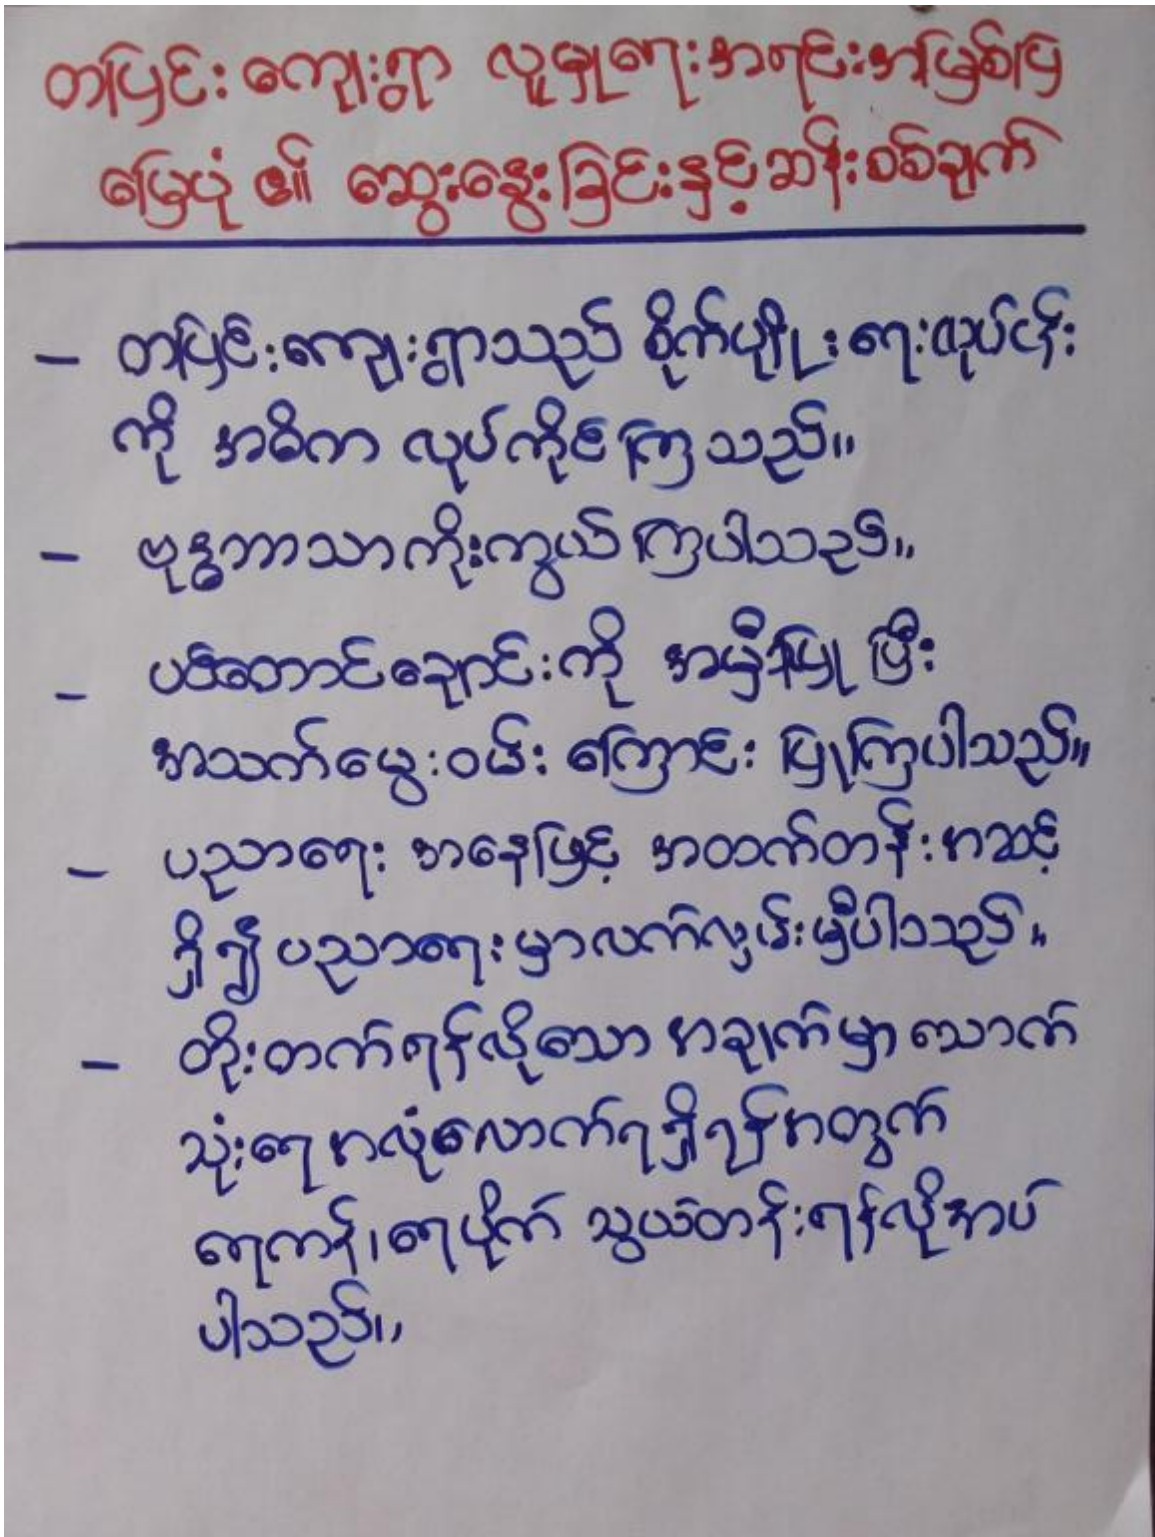 တပြင်းကျေးရွာ လူမှုရေးအရင်းအမြစ်ပြ
မြေပုံ ၏ ဆွေးနွေးခြင်းနှင့်ဆန်းစစ်ချက်
- တပြင်းကျေးရွာသည် စိုက်ပျိုးရေးလုပ်ငန်း
ကို အဓိက လုပ်ကိုင်ကြသည်။
- ဗုဒ္ဓဘာသာကိုးကွယ်ကြပါသည်။
- ပစ်တောင်ချောင်းကို အမှီပြုပြီး
အသက်မွေးဝမ်းကြောင်းပြုကြပါသည်။
- ပညာရေး အနေဖြင့် အတက်တန်းအဆင့်
ရှိ၍ ပညာရေးမှာလက်လှမ်းမှီပါသည်။
- တိုးတက်ရန်လိုသော အချက်မှာ သောက်
သုံးရေ အလုံလောက်ရရှိရန်အတွက်
ရေကန်၊ ရေပိုက် သွယ်တန်းရန်လိုအပ်
ပါသည်။